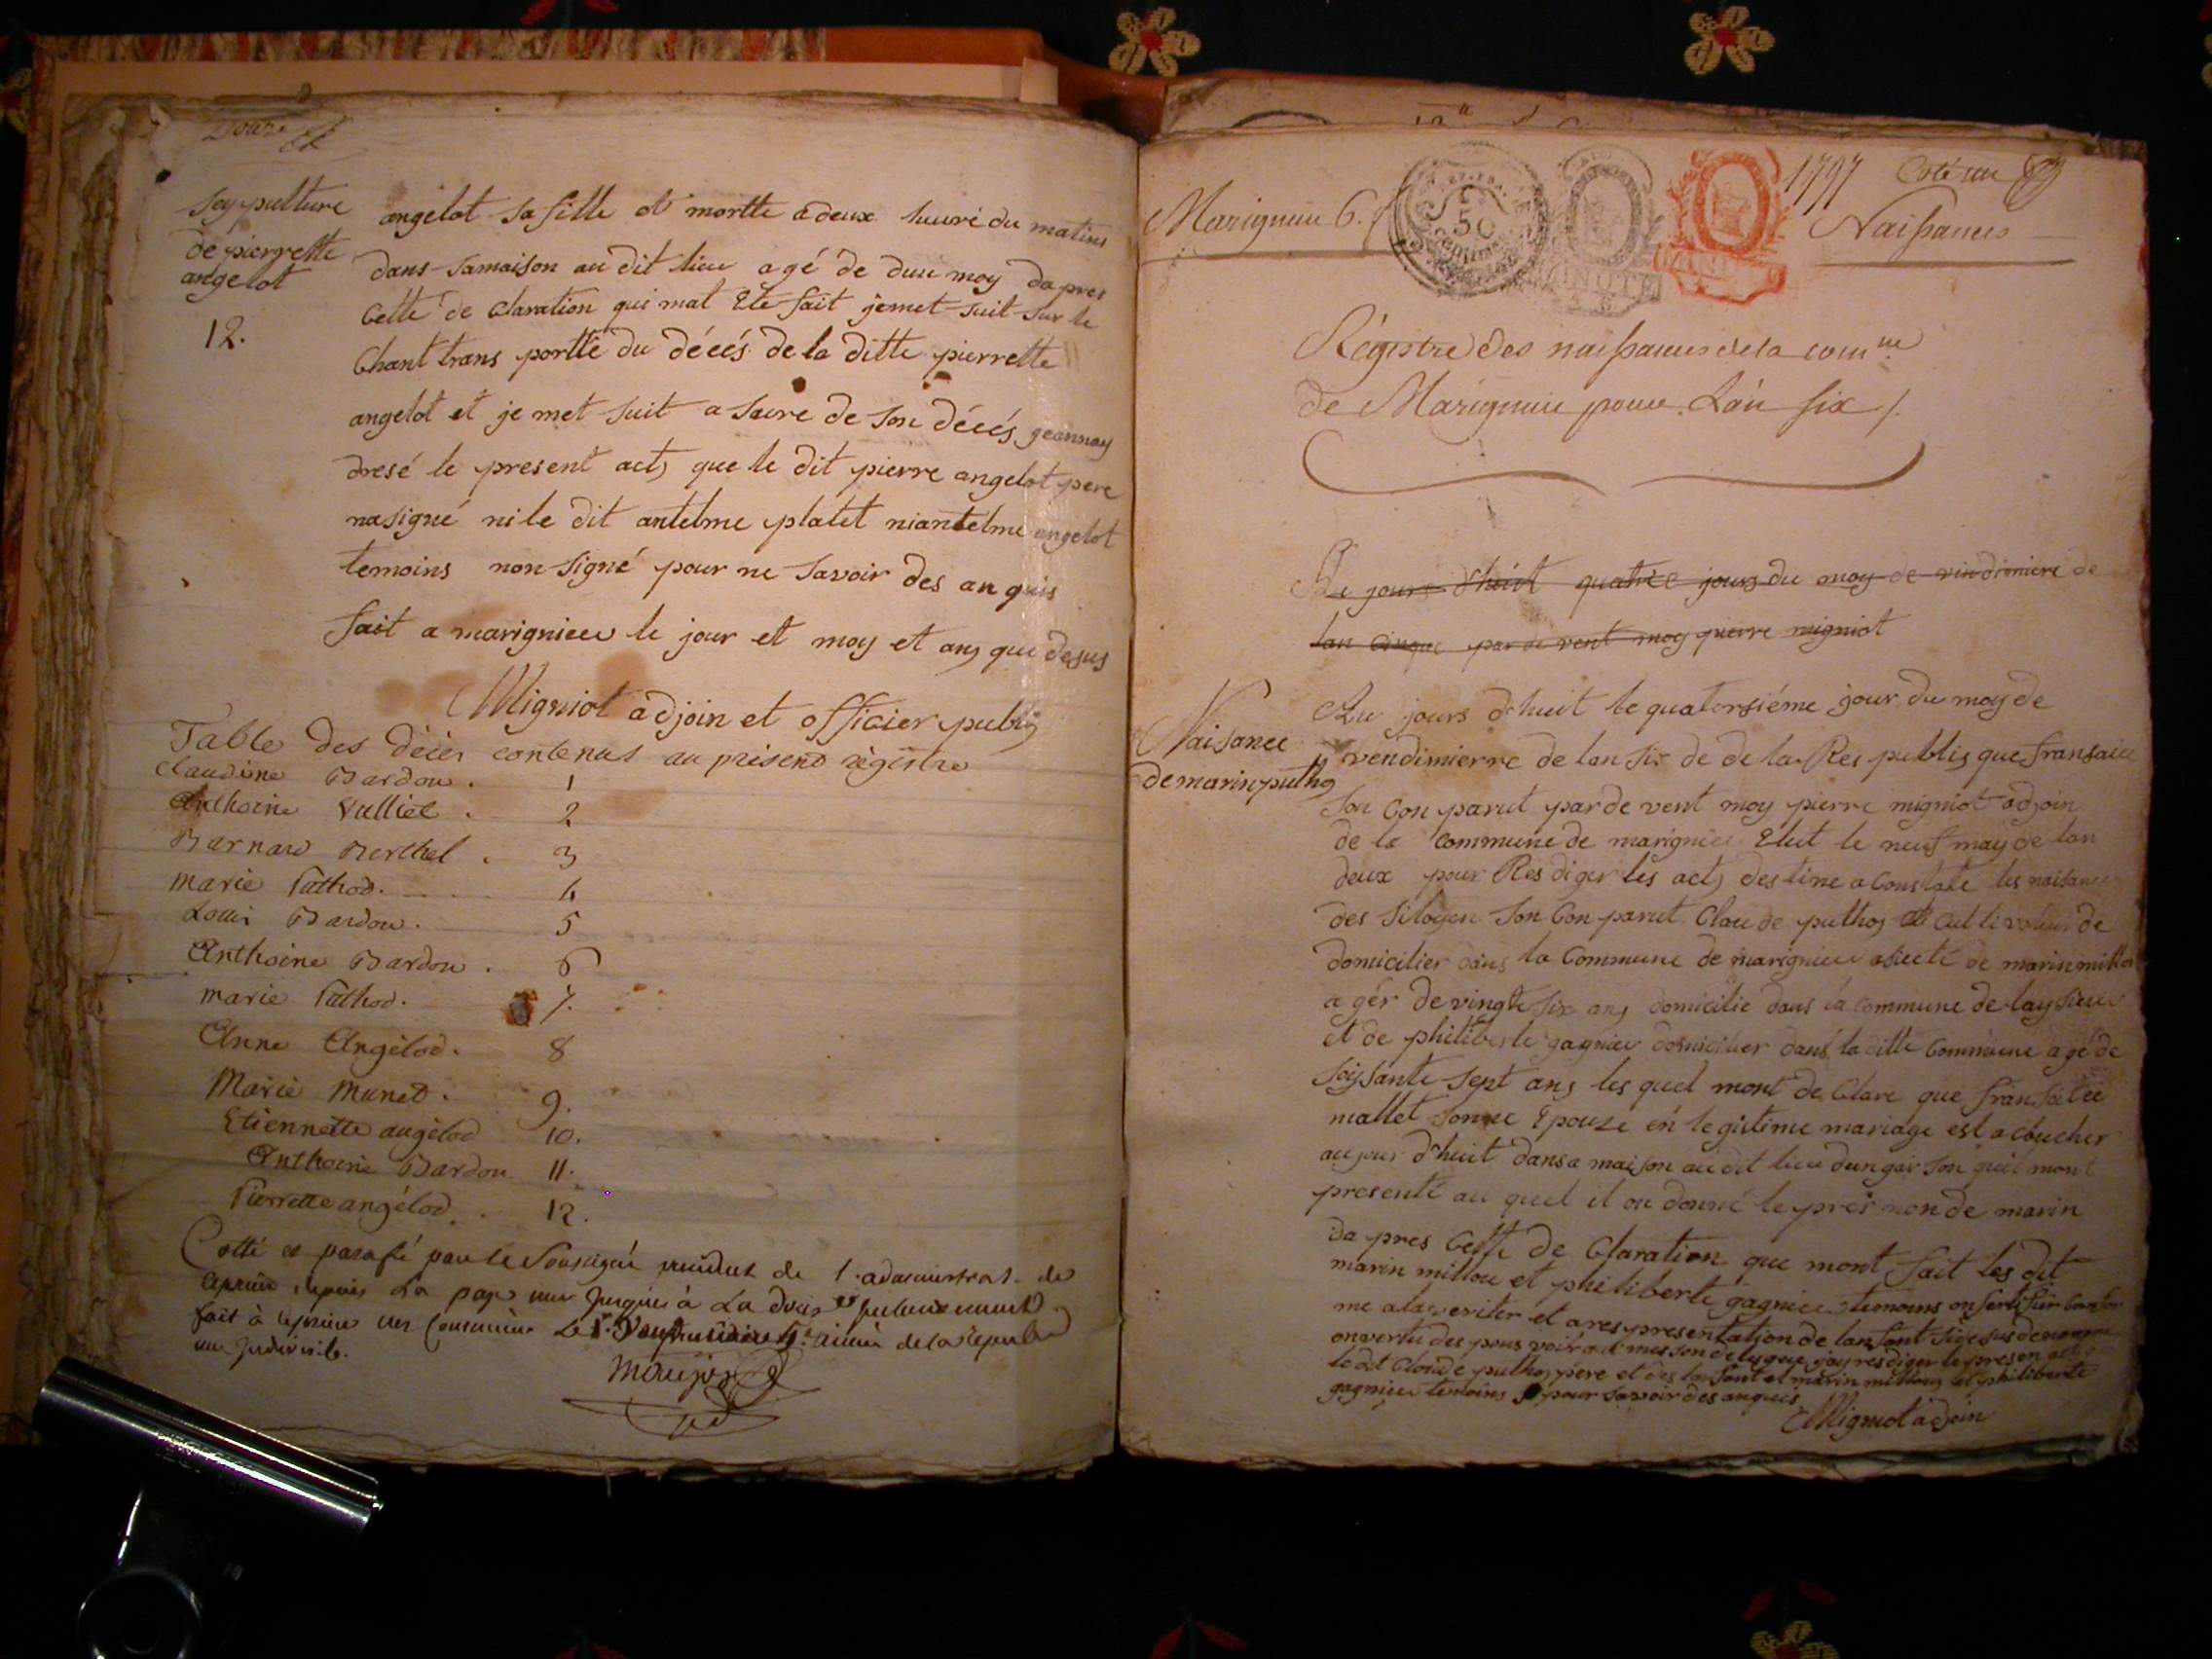 Seypulture
de pierrette
angelot
12.
angelot sa fille et mortte a deux heure du matins
dans sa maison au dit lieu agé de dun moy dapres
Cette de Claration qui mat Eté fait jemet suit sur le
Chant trans portté du décés de la ditte pierrette
angelot et je met suit a sure de son décés jeannay
dresé le present act, que le dit pierre angelot pere
nasigné ni le dit antelme platet ni antelme angelot
temoins non signé pour ne savoir des an quis
fait a marignieu le jour et moy et an, que desus
Migniot adjoin et officier public
Table des décès contenus au présent régistre
Claudine Bardou. 1
Anthoine Vulliet. 2
Barnard Berthel. 3
marie Pathod. 4
Louis Bardou. 5
Anthoine Bardou. 6
marie Pathod. 7.
Anne Angélod. 8
Marie Munet. 9.
Etiennette angélod 10.
Anthoine Bardou 11.
Pierrette angélod. 12.
Cotté et parafé par le Soussigné président de l'administrat. de
fait à
de la Republ
une Indivisible.
Marignieu 6.
50
Centimes
MINUTE
MINUTE
1797
Coté un
Naissances
Régistre des naissances de la comne
de Marignieu pour L'an six /.
Au jours d'huit quatre jours du moy de vindimiere de
lan cinque par de vent moy pierre migniot
Naisance
de marin puthoz
Au jours d'huit le quatorsiéme jour du moy de
vendimierre de lan six de de la Res publis que fransaice
Son Con parut par de vent moy pierre migniot adjoin
de la Commune de marignieu Elut le neuf may de lan
deux pour Res diger les act, destine a Constaté les naisance
des sitoyen Son Con parut Claude puthoz Cultivateur de
domicilier dans la Commune de marignieu asisté de marin millou
a gér de vingt six an, domicilie dans la commune de
et de philiberte gagnieu domicilier dans la ditte Commune agé de
soysante sept ans les quel mont de Clare que
mallet sonne Epouze en legitime mariage est a coucher
au jour d'huit dans a maison au dit lieu dun garson quil mont
presenté au quel il on donné le pres non de marin
da pres Cette de Claration que mont fait les dit
marin millou et philiberte gagnieu temoins
me a la veriter et a res presentation de lanfant si desus denomme
on vertu des pous voir qui mes son jay res diger le presen act
le dit Claude puthoz pere et des lanfant et marin millou et philiberte
gagnieu temoins pour savoir des anquis
Migniot adjoin